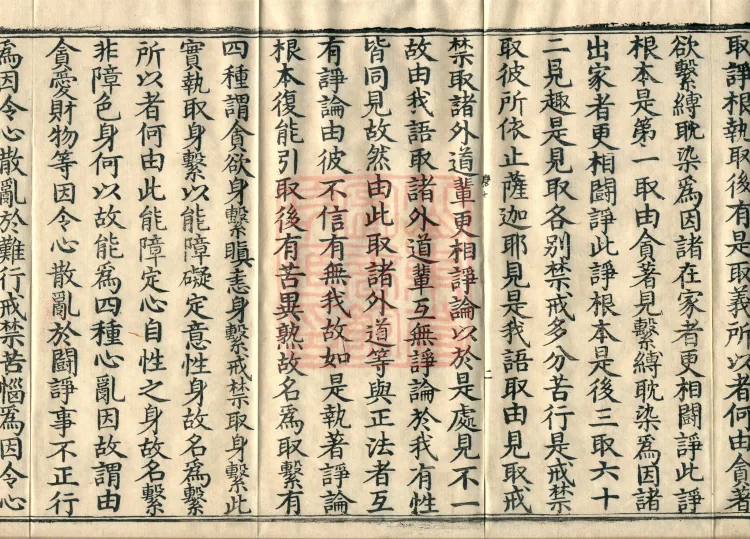 取諍相執取後有是取義所以者何由貪著
欲繫縛耽染爲因諸在家者更相鬪諍此諍
根本是第一取由貪著見繫縛耽染爲因諸
出家者更相鬪諍此諍根本是後三取六十
二見趣是見取各別禁戒多分苦行是戒禁
取彼所依止薩迦耶見是我語取由見取戒
二
禁取諸外道輩更相諍論以於是處見不一
故由我語取諸外道輩互無諍論於我有性
皆同見故然由此取諸外道等與正法者互
有諍論由彼不信有無我故如是執著諍論
根本復能引取後有苦異熟故名爲取繫有
四種謂貪欲身繫瞋恚身繫戒禁取身繫此
實執取身繫以能障礙定意性身故名爲繫
所以者何由此能障定心自性之身故名繫
非障色身何以故能爲四種心亂因故謂由
貪愛財物等因令心散亂於鬪諍事不正行
爲因令心散亂於難行戒禁苦惱爲因令心